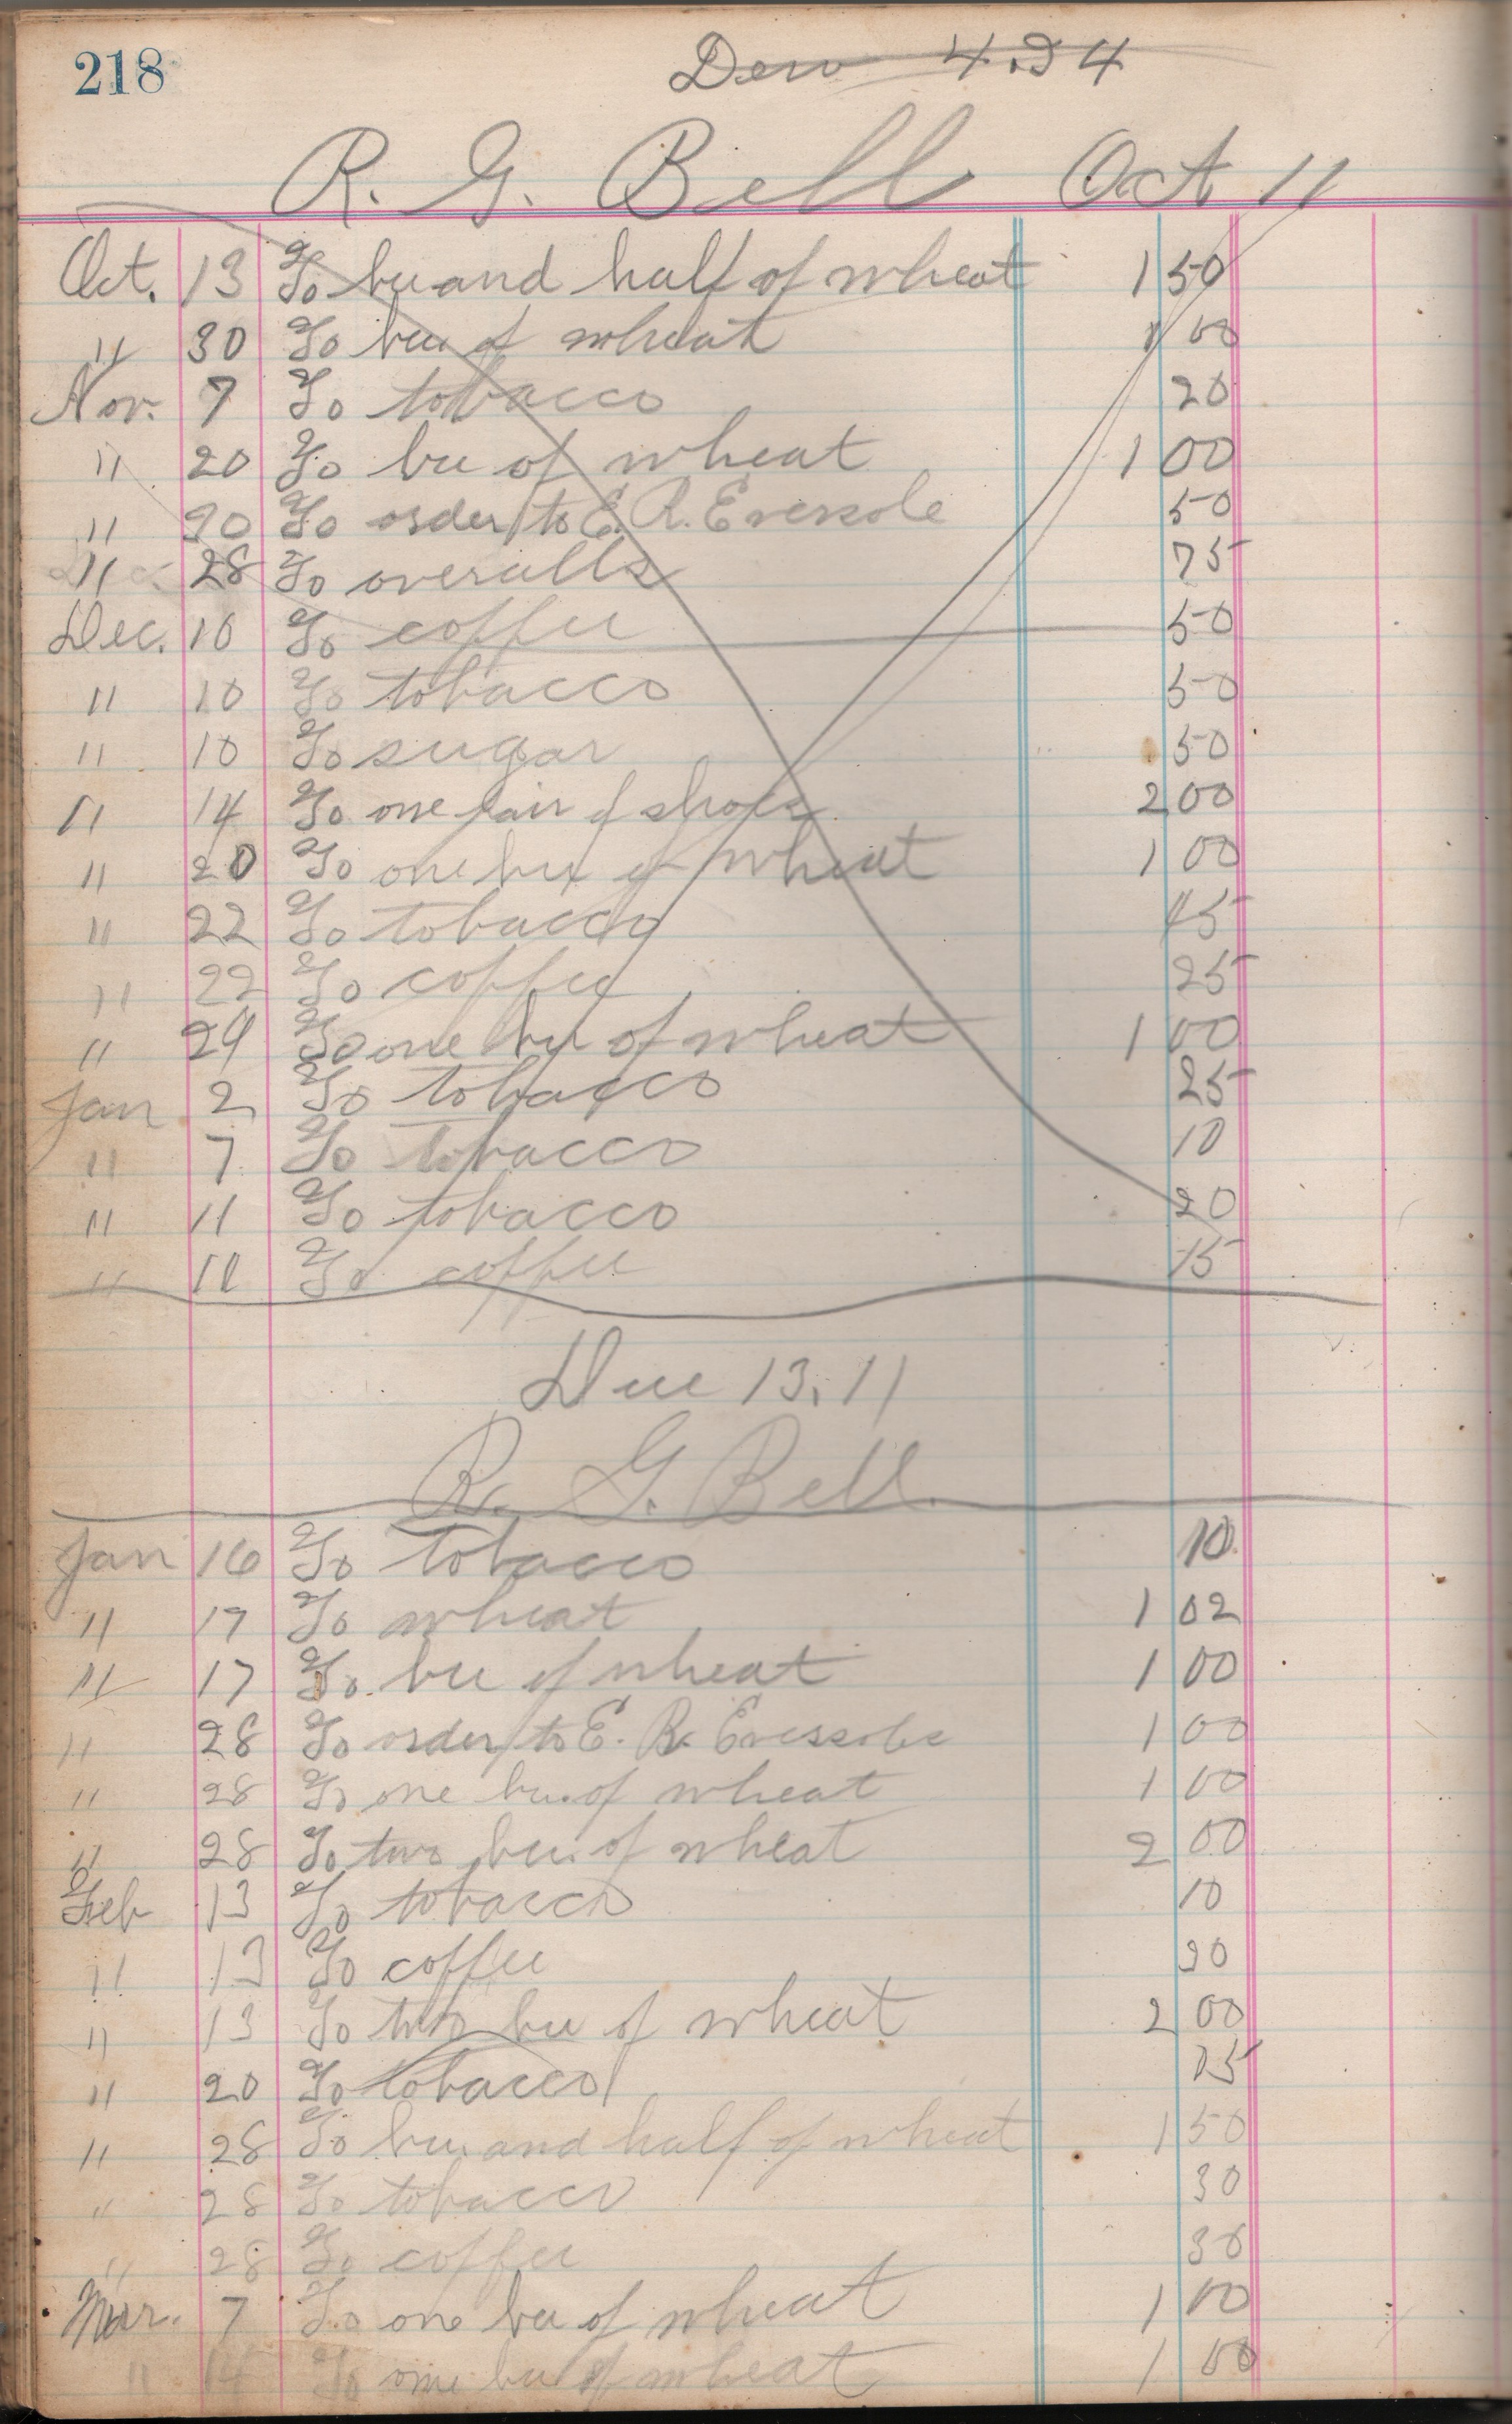 218
4.24
R. G. Bell Oct 11
Oct. 13 To bu and half of wheat 1 50
" 30 To bu of wheat 1 00
Nov. 7 To tobacco 20
" 20 To bu of wheat 1 00
" 20 To order to E. R. Eversole 50
" 28 To overalls 75
Dec. 10 To coffee 50
" 10 To tobacco 50
" 10 To sugar 50
" 14 To one pair of shoes 2 00
" 20 To one bu of wheat 1 00
" 22 To tobacco 45
" 22 To coffee 25
" 24 To one bu of wheat 1 00
Jan 2 To tobacco 25
" 7 To tobacco 10
" 11 To tobacco 20
" 11 To coffee 15
Due 13.11
R. G. Bell
Jan 16 To tobacco 10
" 17 To wheat 1 02
" 17 To bu of wheat 1 00
" 28 To order to E. R. Eversole 1 00
" 28 To one bu. of wheat 1 00
" 28 To two bu. of wheat 2 00
Feb 13 To tobacco 10
" 13 To coffee 30
" 13 To two bu of wheat 2 00
" 20 To tobacco 15
" 28 To bu and half of wheat 1 50
" 28 To tobacco 30
" 28 To coffee 30
Mar. 7 To one bu of wheat 1 00
" 14 To one bu of wheat 1 00